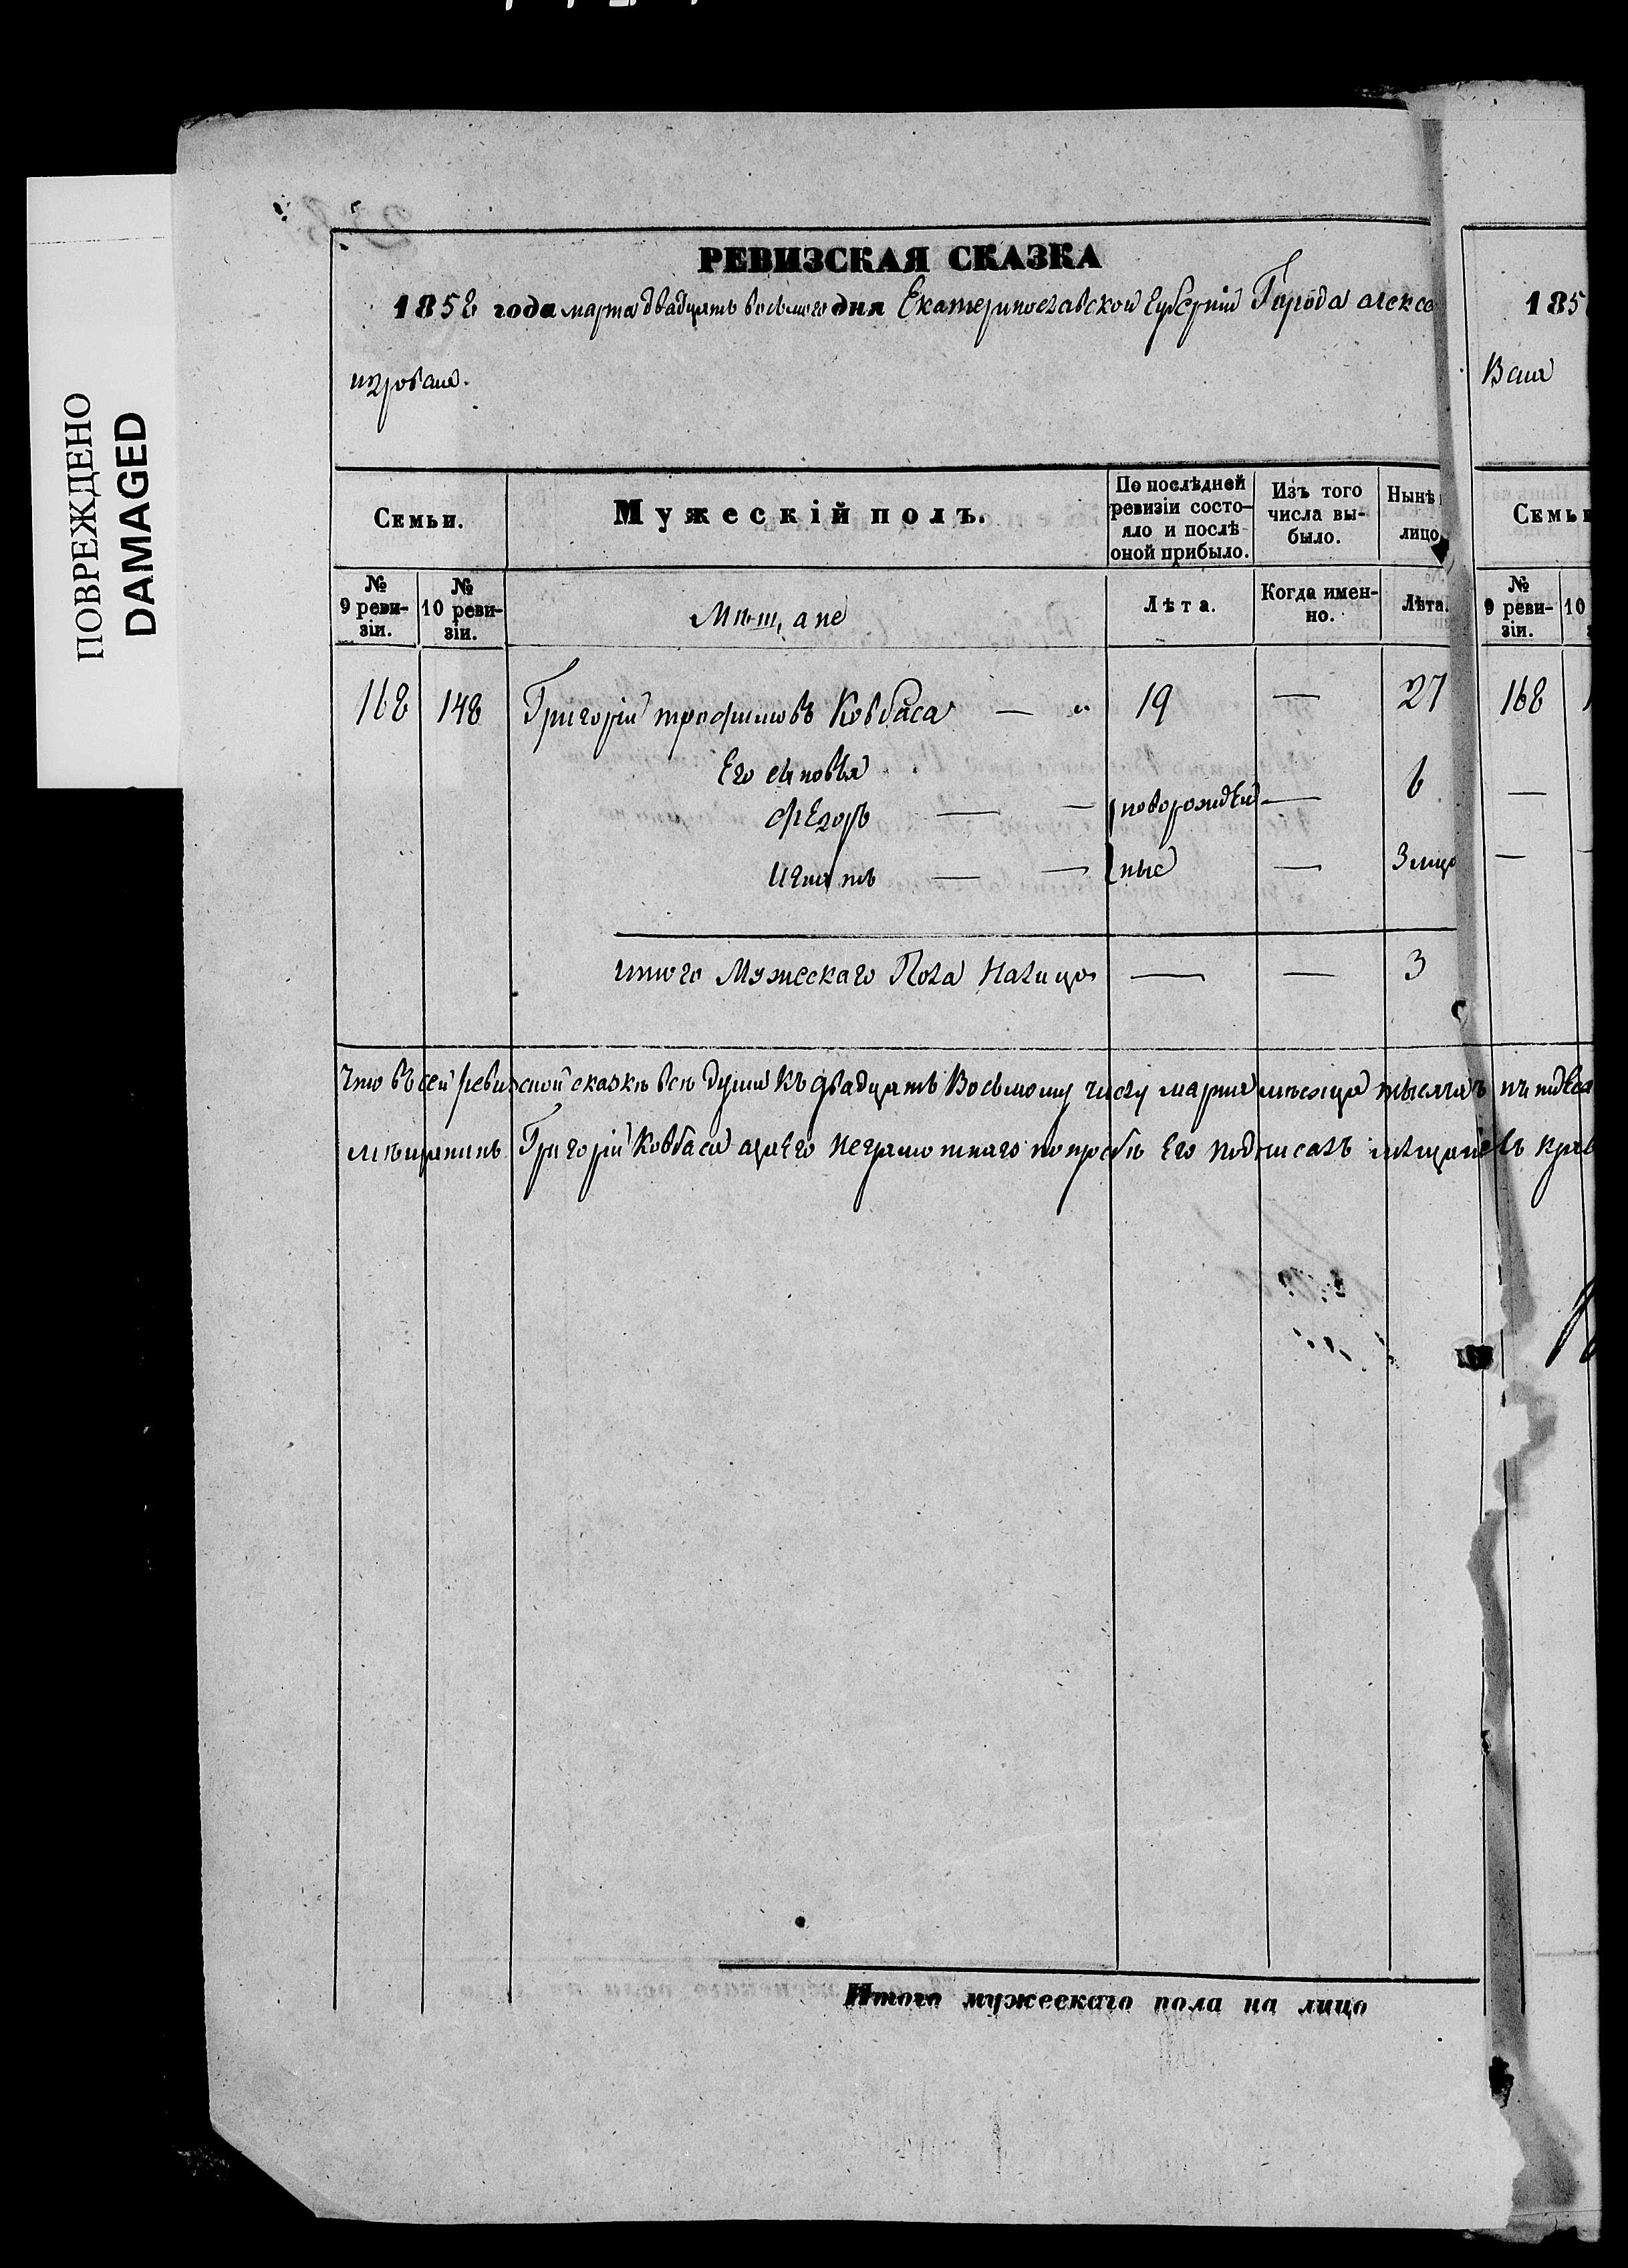 ПОВРЕЖДЕНО
DAMAGED
РЕВИЗСКАЯ СКАЗКА
1858 года марта двадцать восьмого дня Екатеринославской Губерніи Города алекса
185
Вана
Семьи.
Мужескій полъ.
По послѣдней ревизіи состояло и послѣ оной прибыло.
Изъ того числа выбыло.
Нынѣ
лицо
Семьи
№ 9 ревизіи.
№ 10 ревизіи.
Мѣщане
Лѣта.
Когда именно.
Лѣта.
№ 9 ревизіи.
10
168 148 Григорій трофимовъ Ковбаса — " 19 — 27 168
Его сыновья
Фёдоръ — — новорожден — 6 —
Игнатъ — — ные — 3 мѣс —
итого Мужескаго Пола Налицо — — 3
Что въ сей ревизской сказкѣ всѣ души къ двадцать Восьмому числу марта мѣсяца тысяча
мѣщанинъ Григорій Ковбаса а за Его неграмотнаго по просьбѣ Его подписалъ мѣщанинъ
Итого мужескаго пола на лицо